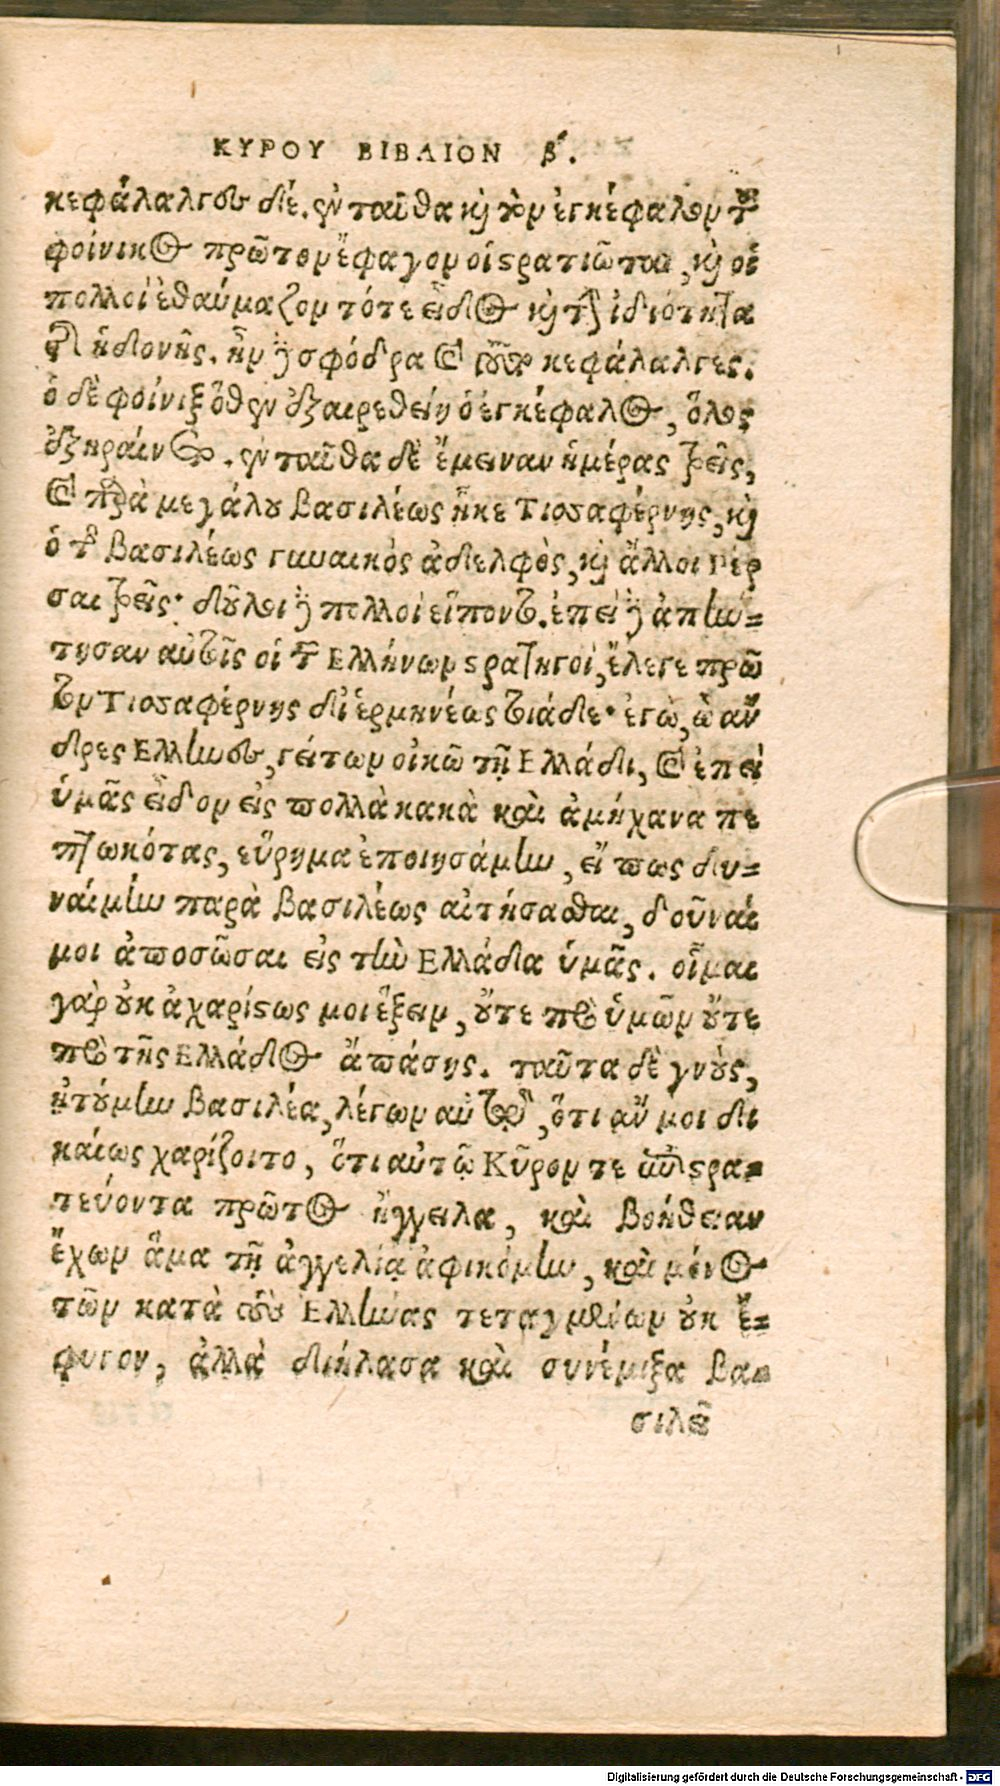 ΚΥΡΟΥ ΒΙΒΛΙΟΝ β´.
κεφάλαλγον δέ. ἐνταῦθα καὶ τὸν ἐγκέφαλον τοῦ
φοίνικος πρῶτον ἔφαγον οἱ στρατιῶται, καὶ οἱ
πολλοὶ ἐθαύμαζον τότε εἶδος καὶ τὴν ἰδιότητα
τῆς ἡδονῆς. ἦν δὲ σφόδρα καὶ τοῦτο κεφάλαλγες.
ὁ δὲ φοίνιξ ὅθεν ἐξαιρεθείη ὁ ἐγκέφαλος, ὅλος
ἐξηραίνετο. ἐνταῦθα δὲ ἔμειναν ἡμέρας τρεῖς,
καὶ παρὰ μεγάλου βασιλέως ἧκε Τισσαφέρνης, καὶ
ὁ τοῦ βασιλέως γυναικὸς ἀδελφὸς, καὶ ἄλλοι Πέρ
σαι τρεῖς· δοῦλοι δὲ πολλοὶ εἵποντο. ἐπεὶ δὲ ἀπήν-
τησαν αὐτοῖς οἱ τῶν Ελλήνων στρατηγοὶ, ἔλεγε πρῶ
τον Τισσαφέρνης δι' ἑρμηνέως τοιάδε· ἐγὼ, ὦ ἄν
δρες Ελληνες, γείτων οἰκῶ τῇ Ελλάδι, καὶ ἐπεὶ
ὑμᾶς εἶδον εἰς πολλὰ κακὰ καὶ ἀμήχανα πε
πτωκότας, εὕρημα ἐποιησάμην, εἴ πως δυ-
ναίμην παρὰ βασιλέως αἰτήσασθαι, δοῦναί
μοι ἀποσῶσαι εἰς τὴν Ελλάδα ὑμᾶς. οἶμαι
γὰρ οὐκ ἀχαρίστως μοι ἕξειν, οὔτε πρὸς ὑμῶν οὔτε
πρὸς τῆς Ελλάδος ἁπάσης. ταῦτα δὲ γνοὺς,
ᾐτούμην βασιλέα, λέγων αὐτῷ, ὅτι ἄν μοι δι
καίως χαρίζοιτο, ὅτι αὐτῷ Κῦρόν τε ἐπιστρα-
τεύοντα πρῶτος ἤγγειλα, καὶ βοήθειαν
ἔχων ἅμα τῇ ἀγγελίᾳ ἀφικόμην, καὶ μόνος
τῶν κατὰ τοὺς Ἕλληνας τεταγμένων οὐκ ἔ-
φυγον, ἀλλὰ διήλασα καὶ συνέμιξα βα-
σιλεῖ